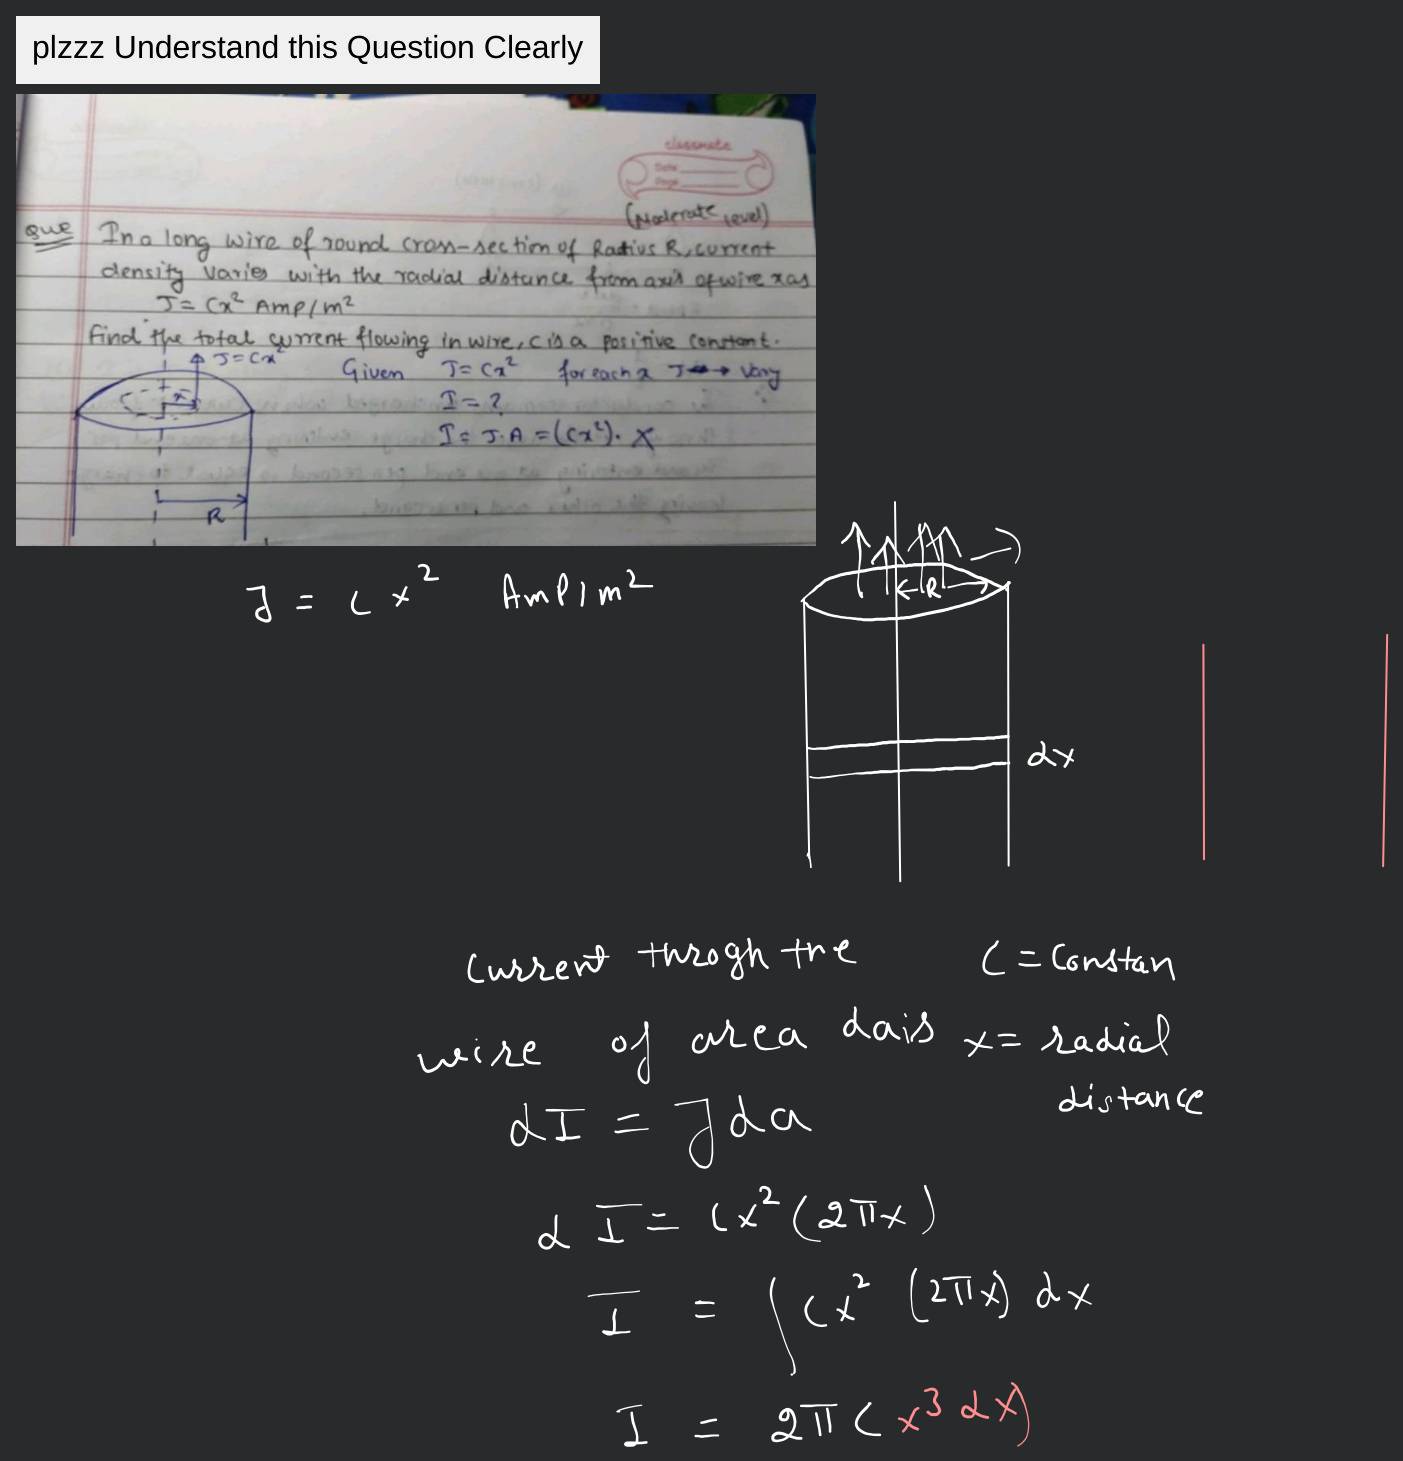 plzzz Understand this Question Clearly
classmate
Date
Page
(Moderate level)
Que In a long wire of round cross-section of Radius R, current
density varies with the radial distance from axis of wire x as
J = Cx² Amp/m²
find the total current flowing in wire, C is a positive constant.
J = Cx²
Given J = Cx² for each x J → Vary
I = ?
I = J.A = (Cx²). X
x
R
J = C x² Amp/m²
R
dx
Current throgh the C = Constan
wire of area da is x = radial
distance
dI = J da
dI = Cx² (2πx)
I = ∫ Cx² (2πx) dx
I = 2π C x³ dx)